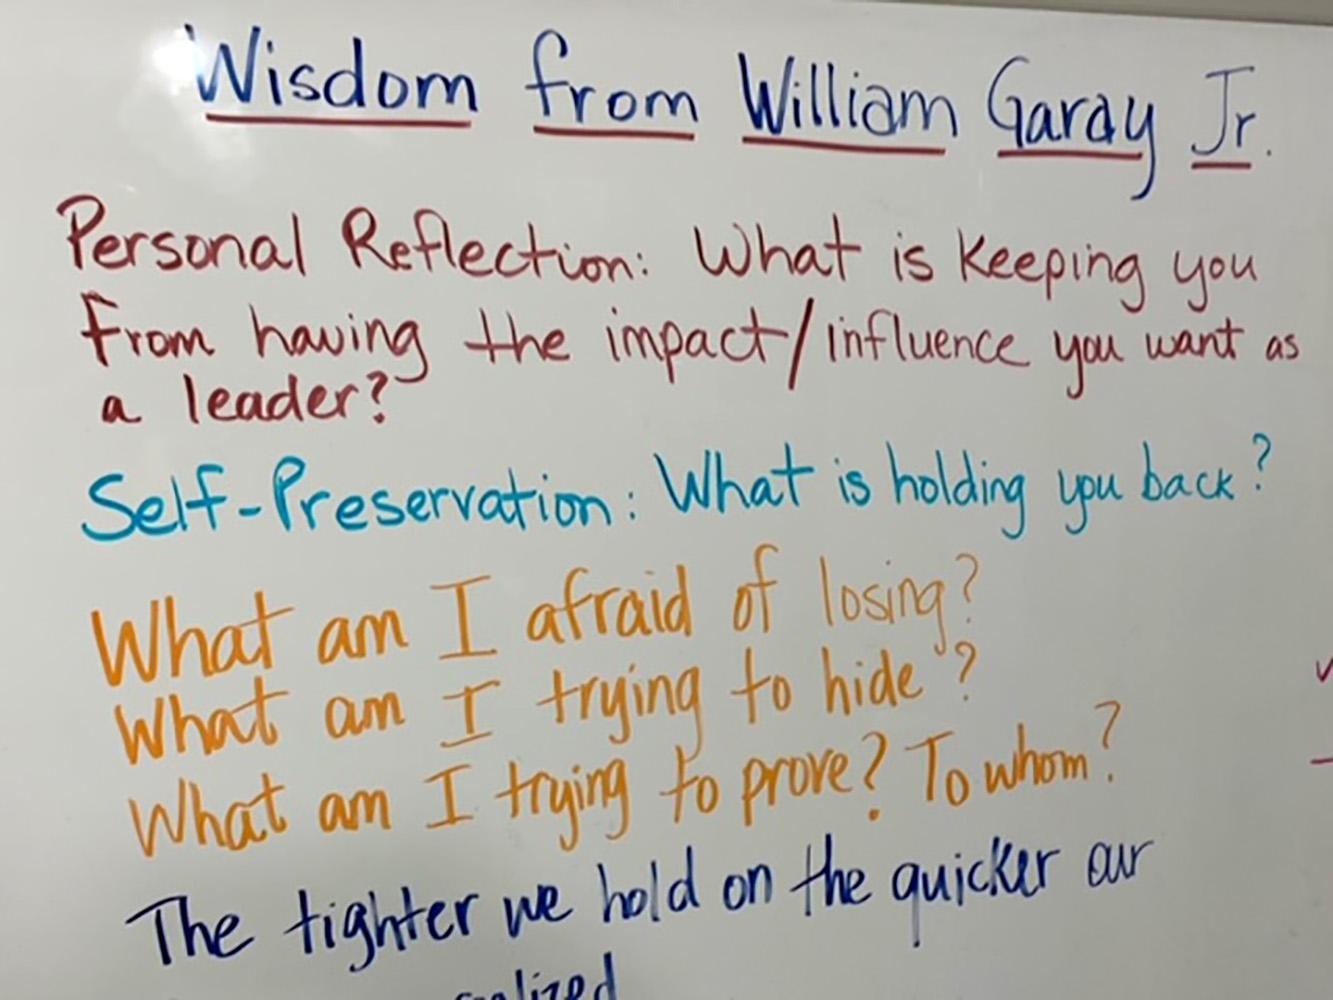 Wisdom from William Garay Jr.
Personal Reflection: What is keeping you
from having the impact/influence you want as
a leader?
Self-Preservation: What is holding you back?
What am I afraid of losing?
What am I trying to hide?
What am I trying to prove? To whom?
The tighter we hold on the quicker our